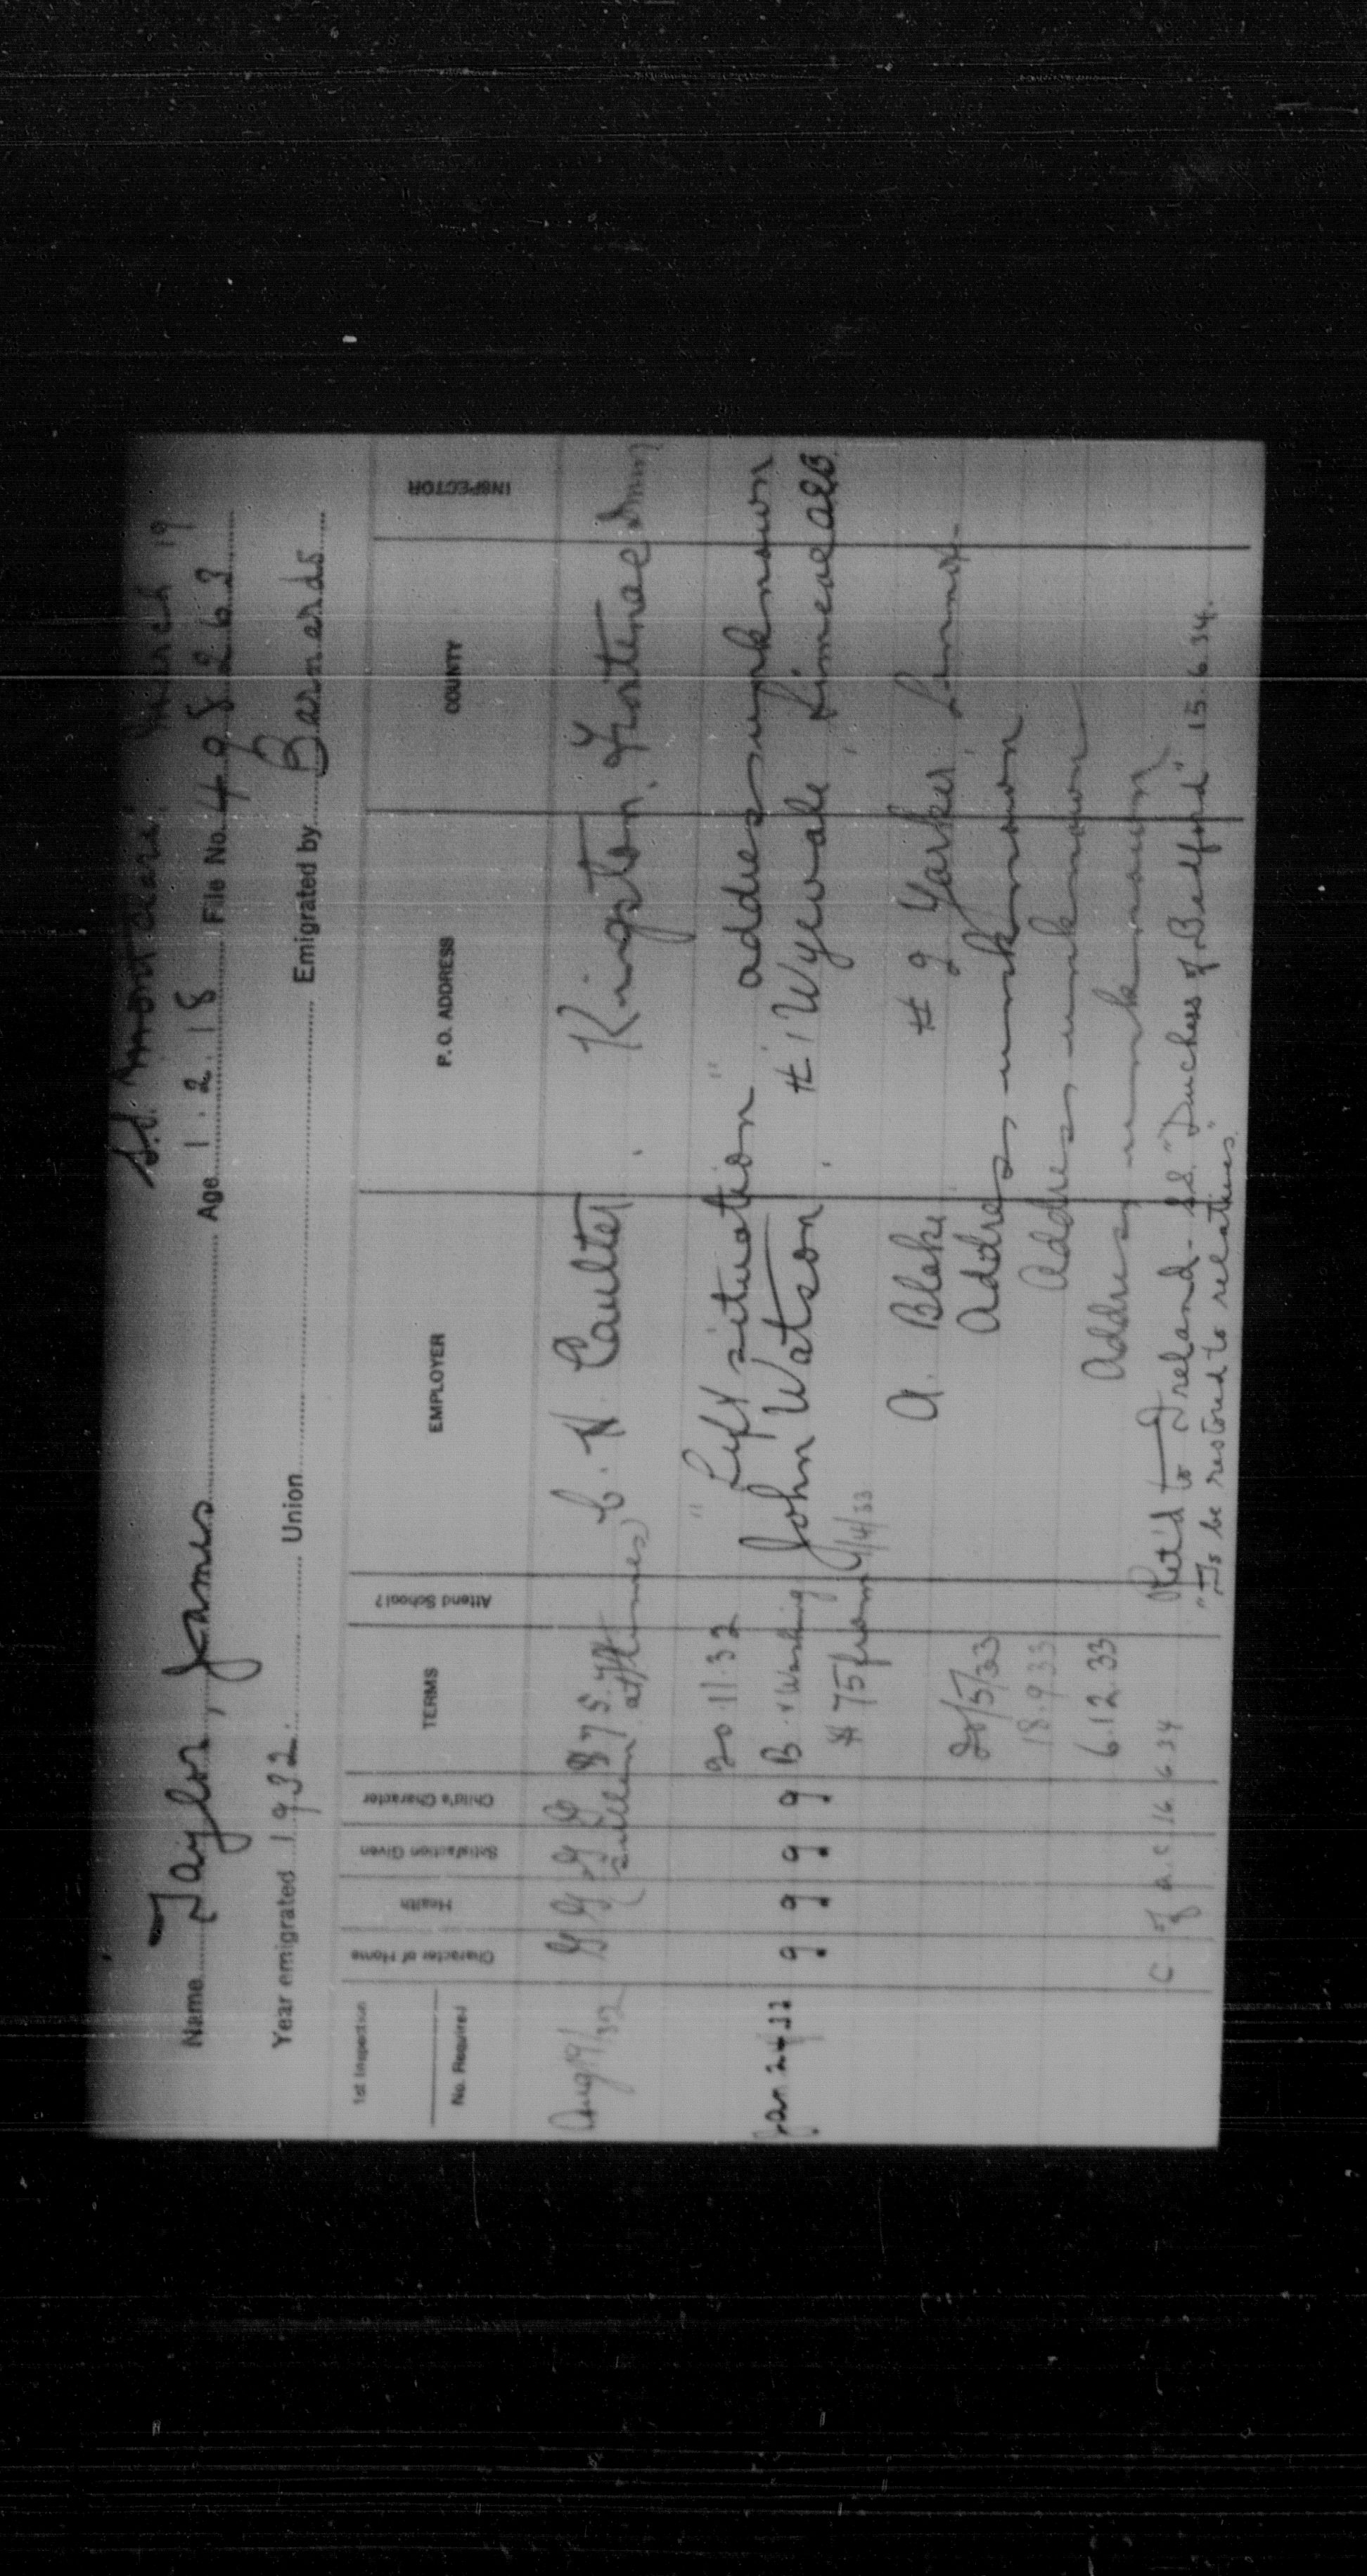 S.S. Montclare March 19
Name Taylor, James Age 1.2.18 File No. 498263
Year emigrated 1932. Union Emigrated by Barnardo
1st Inspection
No. Required
Character of Home
Health
Satisfaction Given
Child's Character
TERMS
Attend School?
EMPLOYER
P. O. ADDRESS
COUNTY
INSPECTOR
Aug 19/32 G G G G $75. C. H. Coulter, Kingston, Frontenac
(sullen at times)
20.11.32 " Left situation " address unknown
Jan 24 33 g g g g B. & Washing John Watson, # 1 Wyevale, Simcoe
$75 from 1/4/33
A. Blake # 9 Yarker, Lennox
20/5/33 Address unknown
18.9.33 Address unknown
6.12.33 Address unknown
C of a.c. 16.6.34 Ret'd to Ireland - S.S. "Duchess of Bedford" 15.6.34.
"To be restored to relatives"